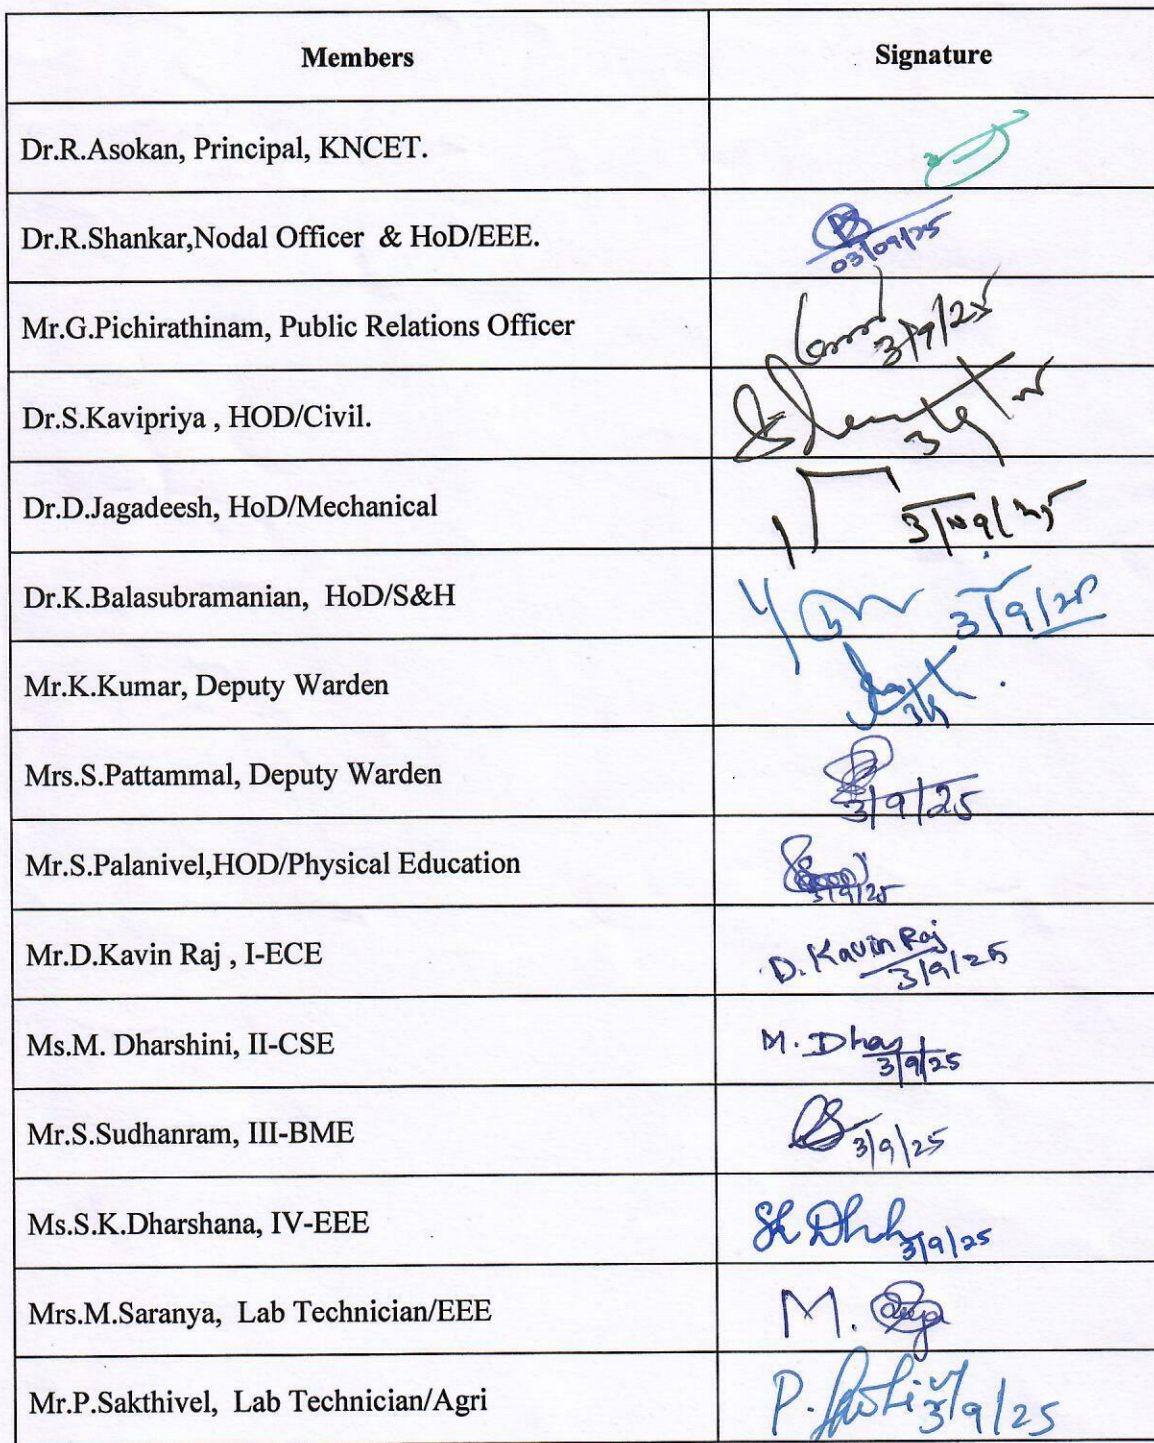 Members Signature
Dr.R.Asokan, Principal, KNCET.
Dr.R.Shankar,Nodal Officer & HoD/EEE.
03/09/25
Mr.G.Pichirathinam, Public Relations Officer
3/9/25
Dr.S.Kavipriya , HOD/Civil.
Dr.D.Jagadeesh, HoD/Mechanical
Dr.K.Balasubramanian, HoD/S&H
3/9/25
Mr.K.Kumar, Deputy Warden
Mrs.S.Pattammal, Deputy Warden
3/9/25
Mr.S.Palanivel,HOD/Physical Education
3/9/25
Mr.D.Kavin Raj , I-ECE D. Kavin Raj
3/9/25
Ms.M. Dharshini, II-CSE M. Dhar
3/9/25
Mr.S.Sudhanram, III-BME
3/9/25
Ms.S.K.Dharshana, IV-EEE
3/9/25
Mrs.M.Saranya, Lab Technician/EEE M.
Mr.P.Sakthivel, Lab Technician/Agri P.
3/9/25